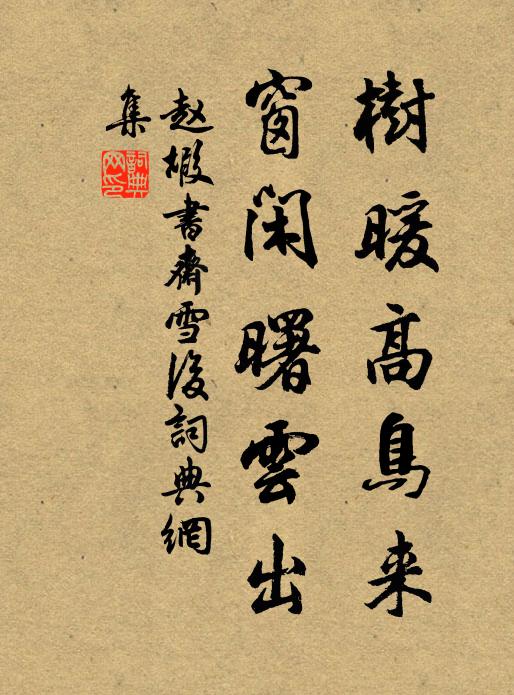 樹暖高鳥来
窗閑曙雲出
赵嘏書齋雪後詞典網
集
詞典网印